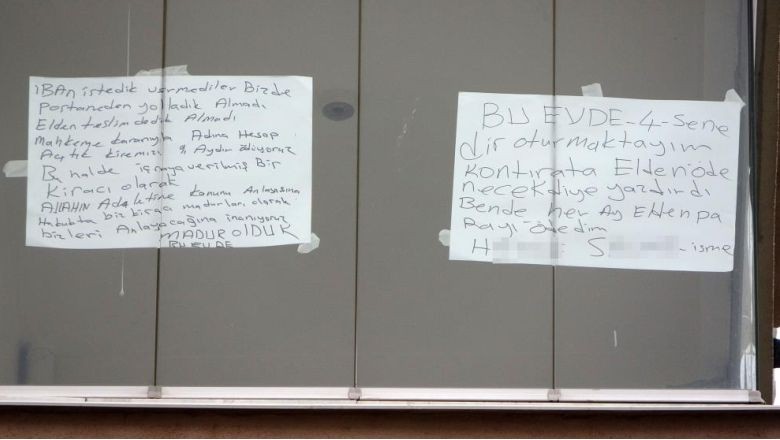 İBAN istedik vermediler Bizde
Postaneden yolladık Almadı
Elden teslim dedik Almadı
Mahkeme kararıyla Adına Hesap
Açtık kiremizi 9 Aydır ödüyoruz
Bu halde icraya verilmiş Bir
kiracı olarak
ALLAHN Adaletine kanunu Anlayasına
biz biraci madurları olarak
bizleri Anlayacağına inanıyoruz
MADUR OlDUK
BU EVDE
BU EVDE-4-Sene
dir oturmaktayım
kontırata Elden öde
necek diye yazdırdı
Bende her Ay Elden pa
Rayı ödedim
H S -isme